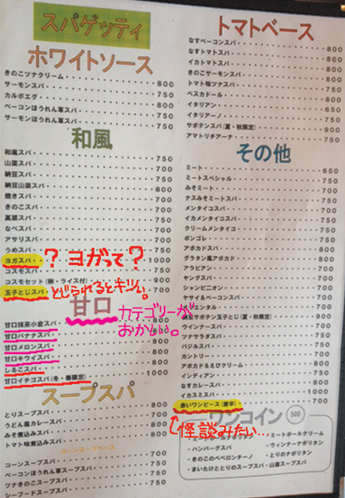 スパゲッティ
ホワイトソース
きのこツナクリーム 800
サーモンスパ 750
カルボエッグ 800
ベーコンほうれん草スパ 750
サーモンほうれん草スパ 750
和風
山菜スパ 700
納豆スパ 750
納豆山菜スパ 800
焼きスパ 700
きのこスパ 700
なべスパ 700
アサリスパ 750
うめスパ
ヨガスパ 1000
コスモスパ 750
玉子とじスパ
?ヨガって?
とじられるとキツい。
甘口
カテゴリーが
おかしい。
甘口抹茶小倉スパ
甘口バナナスパ
甘口メロンスパ
甘口キウイスパ
しるこスパ
甘口イチゴスパ(冬・春限定) 1000
スープスパ
とりスープスパ 700
うどん風カレースパ 700
みそ煮込みスパ 800
トマト味噌煮込みスパ
コーンスープスパ 700
ベーコンほうれん草スープスパ 750
ツナきのこスープスパ 750
シーフードスープスパ 750
トマトベース
なすベーコンスパ 700
なすトマトスパ 750
イカトマトスパ 750
きのこサーモンスパ 800
トマト味ツナスパ 750
ペスカトール 800
イタリアン 650
イタリアーノ 750
サボテンスパ(夏・秋限定) 900
アマトリチアーナ 750
その他
ミート 650
ミートスペシャル 750
みそミート 700
ナスみそミートスパ 750
メンタイコスパ 700
イカメンタイコスパ 750
クリームメンタイコ 750
ボンゴレ 750
アボカドスパ 800
グラタン風アボカド 800
アラビアン 700
ヤングスパ 700
シャンピニオン 700
ヤサイ&ベーコンスパ 700
オリエンタル
納豆サボテン玉子とじ(夏・秋限定)
ウインナースパ 700
ツナサラダスパ 750
バジルスパ 750
カントリー 700
アボカド&えびクリーム 800
インディアン 750
なすカレースパ 700
イカスミスパ
赤いワンピース(激辛) 700
怪談みたい…
ワンコイン 500
・ミートボールクリーム
・ハンバーグスパ ・ウィンナーナポリタン
・きのこのペペロンチーノ ・とりのナポリタン
・まいたけととりのスープスパ ・山菜スープスパ